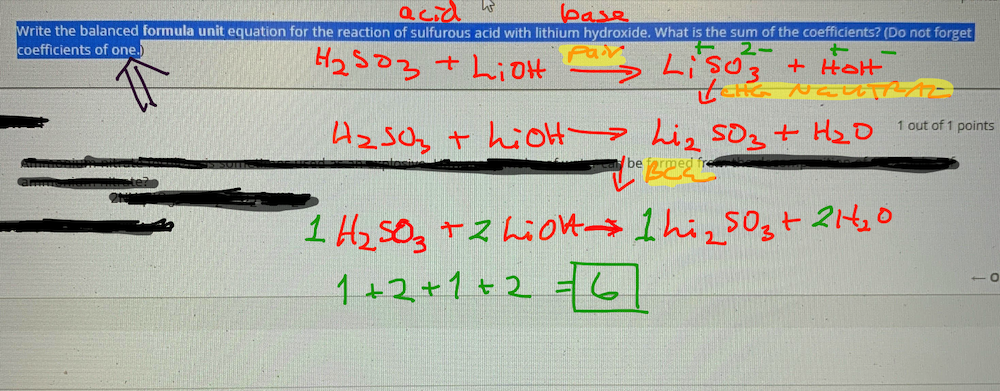 acid base
Write the balanced formula unit equation for the reaction of sulfurous acid with lithium hydroxide. What is the sum of the coefficients? (Do not forget
coefficients of one.)
H₂SO₃ + LiOH pair → Li⁺SO₃²⁻ + H⁺OH⁻
CHG NEUTRAL
H₂SO₃ + LiOH → Li₂SO₃ + H₂O
1 out of 1 points
be formed
BCE
1 H₂SO₃ + 2 LiOH → 1 Li₂SO₃ + 2 H₂O
1 + 2 + 1 + 2 = 6